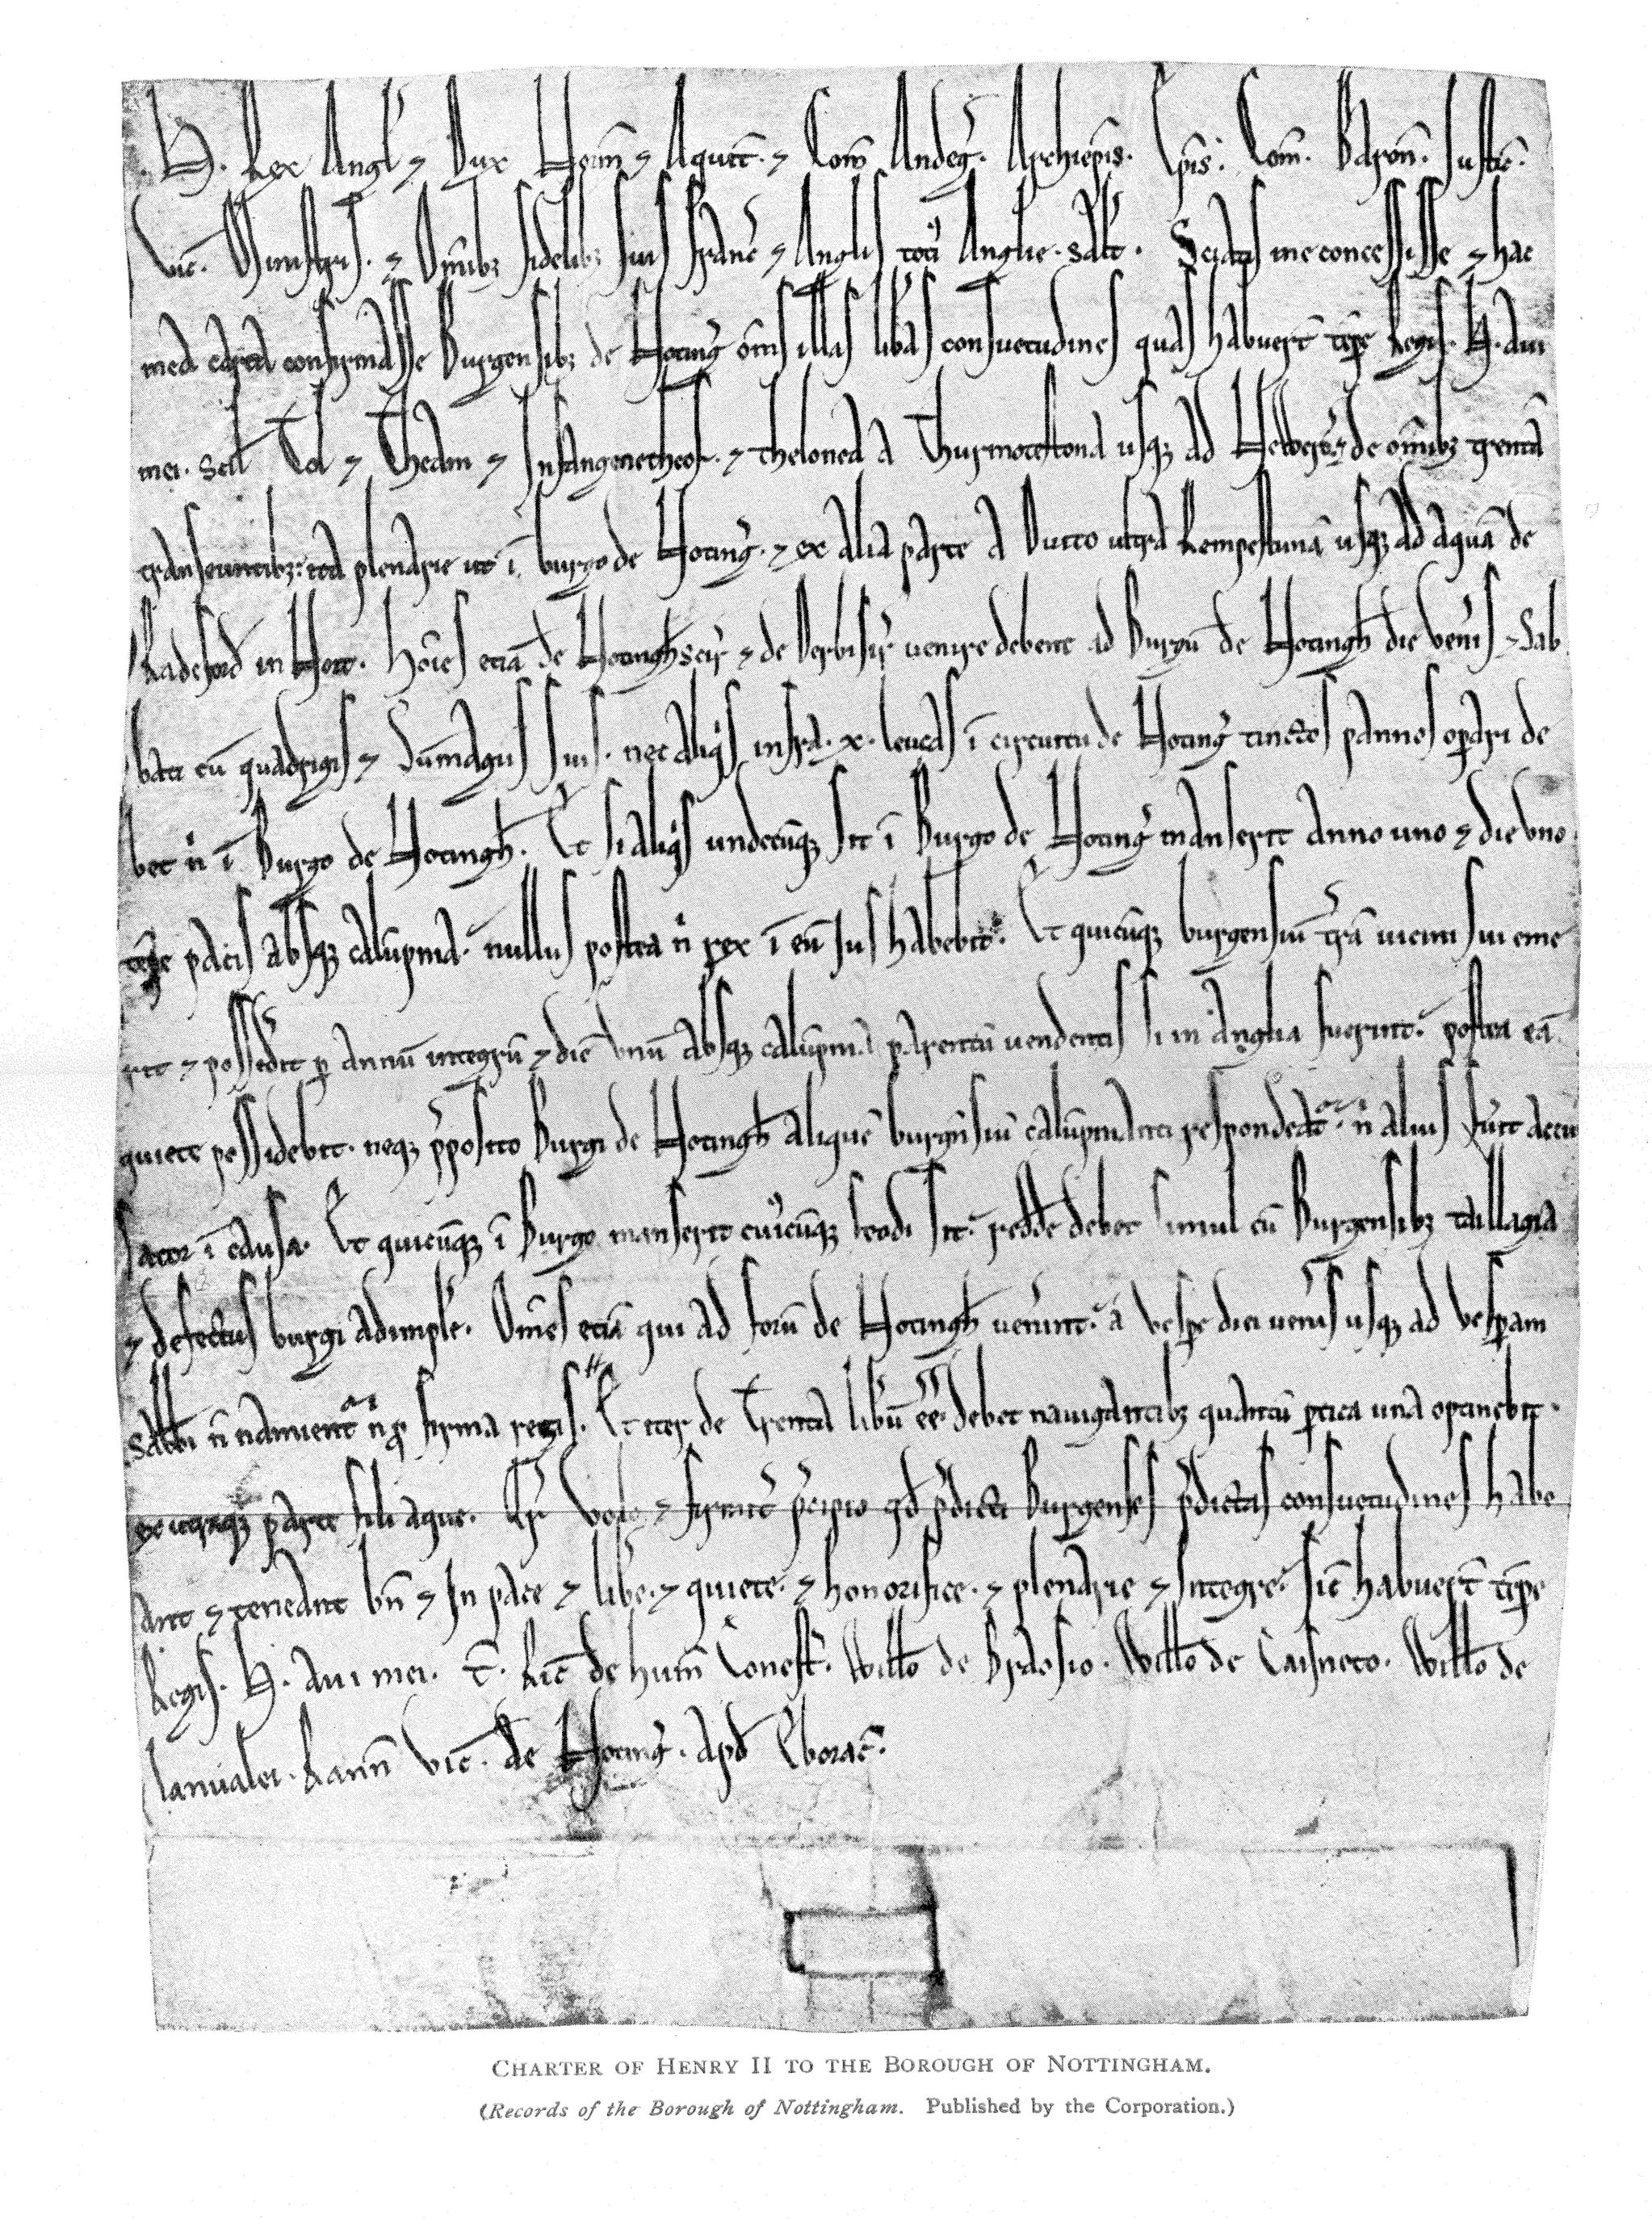 H. Rex Angl' ⁊ Dux Norm̄ ⁊ Aquit̄. ⁊ Com̄ Andeg̃. Archiep̄is. Ep̄is. Com̄. Baron̄. Justic̄.
Vic̄. Ministris. ⁊ Om̄ib; fidelib; suis Franc̄ ⁊ Anglis toti' Anglie. Salt̄. Sciatis me concessisse ⁊ hac
mea carta confirmasse Burgensib; de Noting̃ om̄s illas lib̃as consuetudines quas habuert̄ tēpr̄e Regis. H. aui
mei. scil' Tol ⁊ Theam ⁊ Infangenetheof. ⁊ theloneā a Thurmotestona usq; ad Newerc̃. ⁊ de omīb; trentā
transeuntib;. ita plenarie ut ī burgo de Noting̃. ⁊ ex alia parte a Duito ultra Rempestunā usq; ad aquā de
Radeford in Nort. Hoīes etiā de Notinghscir' ⁊ de Derbisir' uenire debent ad Burgū de Notingh̄ die Ven̄is ⁊ Sab
bati cū quadrigis ⁊ Sum̄agiis suis. nec aliq's infra. x. leucas ī circuitu de Noting̃ tinctos pannos opari de
bet n' ī Burgo de Notingh̄. Et si aliq's undecūq; sit ī Burgo de Noting̃ manserit anno uno ⁊ die uno.
tēpr̄e pacis absq; calūpnia. nullus postea n' rex ī eū Jus habebit. Et quicūq; burgensiū t'rā uicini sui eme
rit ⁊ possed'it p annū integrū ⁊ diē unū absq; calūpnia parentū uendentis si in anglia fuerint. postea eā
quiete possidebit. neq; p'posito Burgi de Notingh̄ aliquē burg̃nsiū calūpnianti respondeat'. n' alius fu'it accu
sator ī causa. Et quicūq; ī Burgo manserit cui'cūq; feodi sit. redde debet simul cū Burgensib; taillagia
⁊ defectus burgi adimple'. Om̄es etiā qui ad forū de Notingh̄ uen'int. a Vespe diei uen̄is usq; ad Vespam
sabbī n̄ namient' n' p firma regis. Et iter de Trenta lib'ū ēē debet nauigantib; quantū ptica una optinebit
ex utraq; parte fili aque. Qr' Volo ⁊ firmit' p'cipio qd̄ p'dicti Burgenses p'dictas consuetudines habe
ant ⁊ teneant bn̄ ⁊ In pace ⁊ libe. ⁊ quiete. ⁊ honorifice. ⁊ plenarie ⁊ Integre. sic̄ habuert̄ tēpr̄e
Regis. H. aui mei. T̄. Ric̄ de hum̄ Conest'. Will̄o de Braosio. Will̄o de Caisneto. Will̄o de
lanualei. Rann̄ Vic̄. de Noting̃. Apd̄ Eborac̄.
CHARTER OF HENRY II TO THE BOROUGH OF NOTTINGHAM.
(Records of the Borough of Nottingham. Published by the Corporation.)